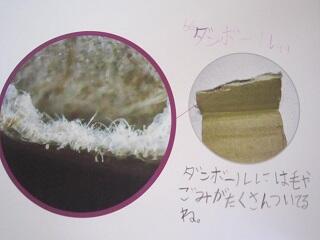 ダンボール
ダンボールには毛や
ごみがたくさんついてる
ね。